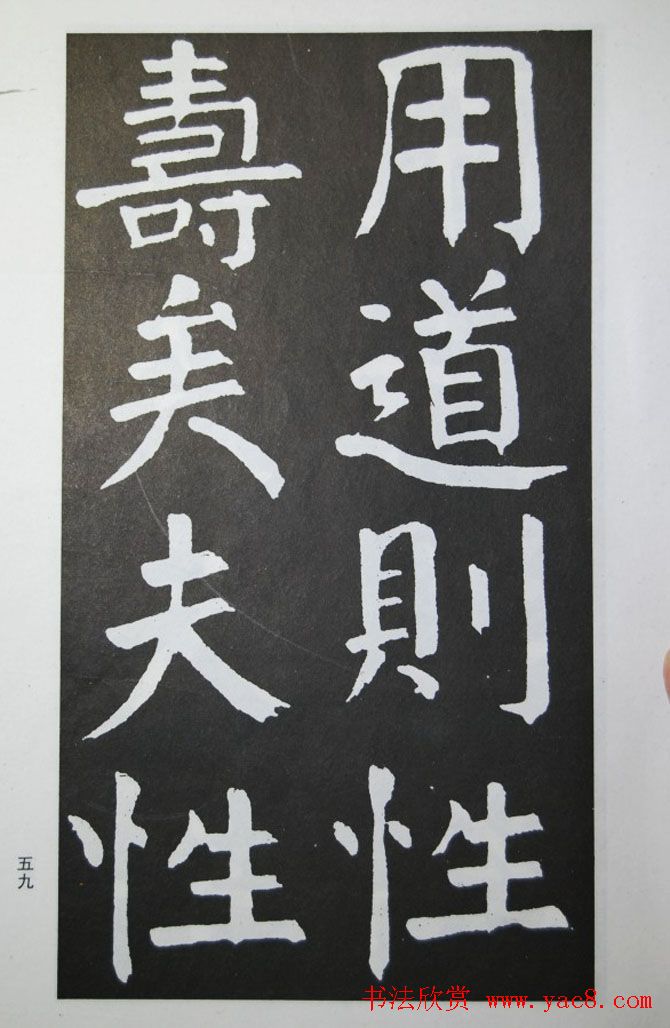 用道則性
壽矣夫性
五九
书法欣赏 www.yac8.com